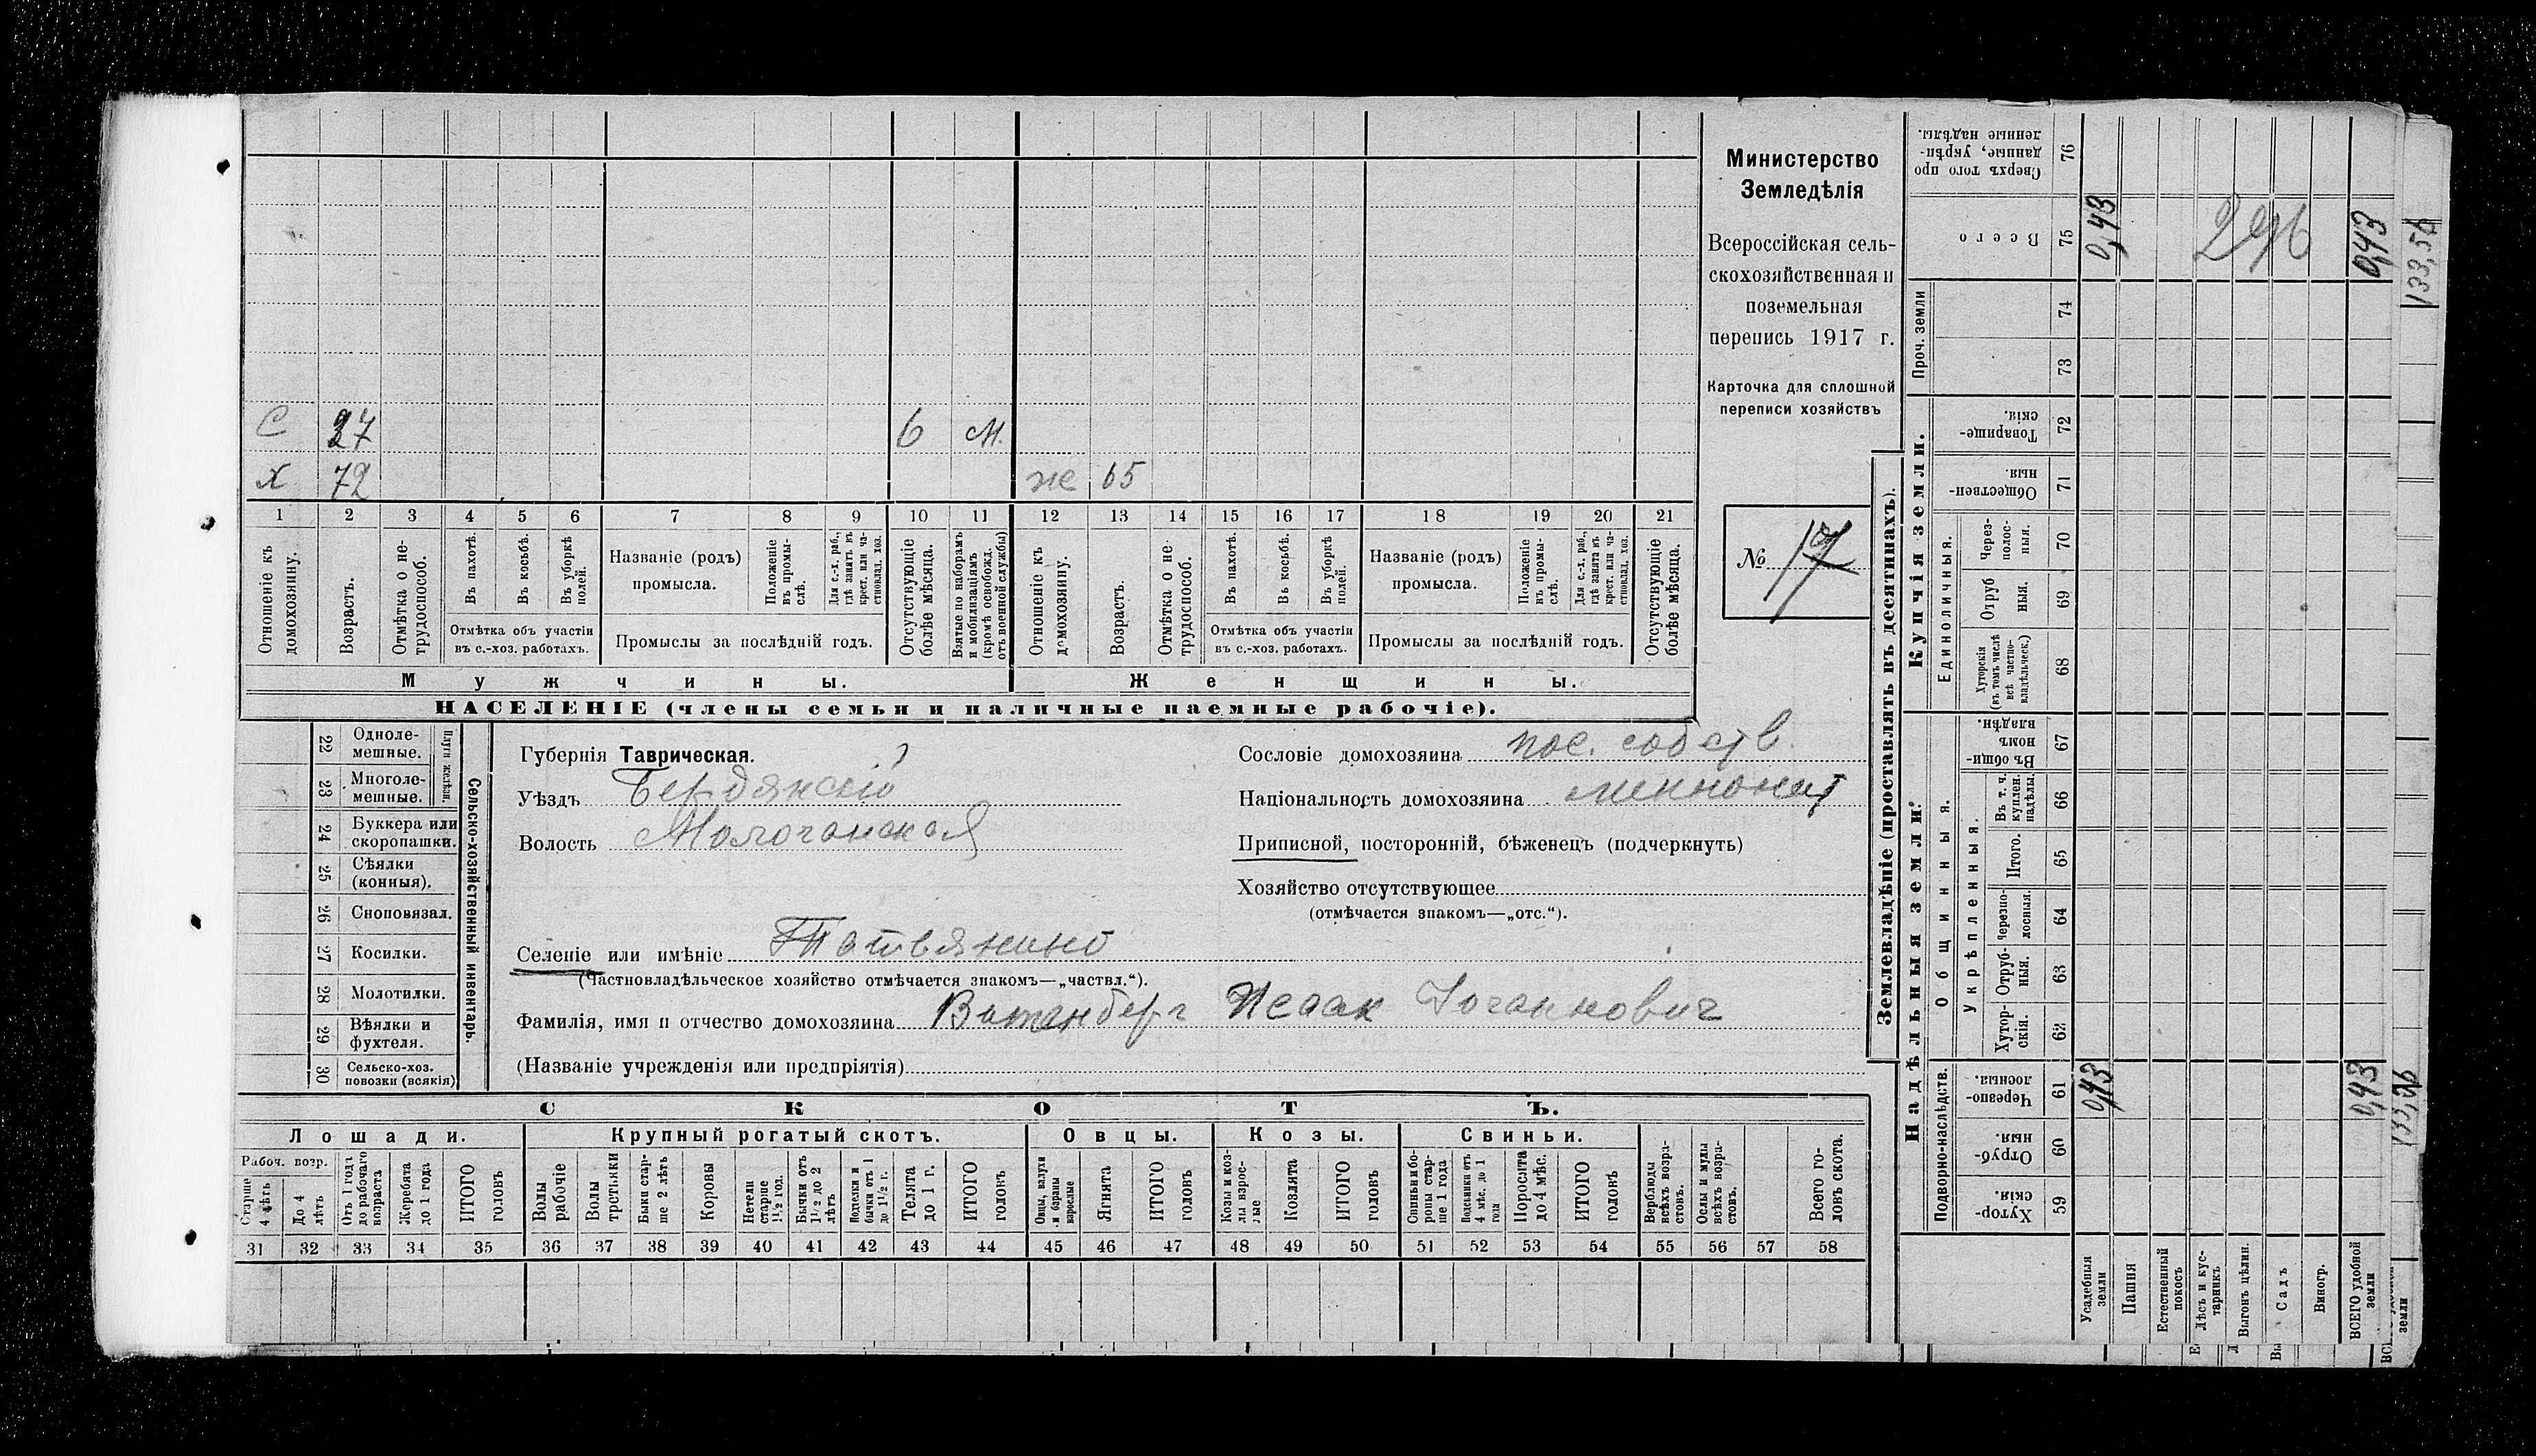 С 37 6 М.
Х 72 же 65
1 2 3 4 5 6 7 8 9 10 11 12 13 14 15 16 17 18 19 20 21
Отношеніе къ домохозяину.
Возрастъ.
Отмѣтка о не-трудоспособ.
Въ пахотѣ.
Въ косьбѣ.
Въ уборкѣ полей.
Отмѣтка объ участіи
въ с.-хоз. работахъ.
Названіе (родъ)
промысла.
Положеніе въ промы-слѣ.
Для с.-х. раб., гдѣ занятъ въ крест. или ча-стновлад. хоз.
Промыслы за послѣдній годъ.
Отсутствующіе болѣе мѣсяца.
Взятые по наборамъ и мобилизаціямъ (кромѣ освобожд. отъ военной службы)
Отношеніе къ домохозяину.
Возрастъ.
Отмѣтка о не-трудоспособ.
Въ пахотѣ.
Въ косьбѣ.
Въ уборкѣ полей.
Отмѣтка объ участіи
въ с.-хоз. работахъ.
Названіе (родъ)
промысла.
Положеніе въ промы-слѣ.
Для с.-х. раб., гдѣ занята въ крест. или ча-стновлад. хоз.
Промыслы за послѣдній годъ.
Отсутствующіе болѣе мѣсяца.
Мужчины. Женщины.
НАСЕЛЕНІЕ (члены семьи и наличные наемные рабочіе).
Министерство
Земледѣлія
Всероссійская сель-
скохозяйственная и
поземельная
перепись 1917 г.
Карточка для сплошной
переписи хозяйствъ
№
22 Одноле-мешные.
23 Многоле-мешные.
Плуги желѣзн.
24 Буккера или скоропашки.
25 Сѣялки (конныя).
26 Сноповязал.
27 Косилки.
28 Молотилки.
29 Вѣялки и фухтеля.
30 Сельско-хоз. повозки (всякія)
Сельско-хозяйственный инвентарь.
Губернія Таврическая.
Уѣздъ Бердянскій
Волость Молочанская
Селеніе или имѣніе
(Частновладѣльческое хозяйство отмѣчается знакомъ—„частвл.“).
Фамилія, имя и отчество домохозяина Витенберг Исаак Иоганнович
(Названіе учрежденія или предпріятія)
Сословіе домохозяина пос. собств.
Національность домохозяина меннонит
Приписной, посторонній, бѣженецъ (подчеркнуть)
Хозяйство отсутствующее
(отмѣчается знакомъ—„отс.“).
СКОТЪ.
Лошади. Крупный рогатый скотъ. Овцы. Козы. Свиньи.
Рабоч. возр.
Старше 4 лѣтъ
До 4 лѣтъ
Отъ 1 года до рабочаго возраста
Жеребята до 1 года
ИТОГО головъ
Волы рабочіе
Волы третьяки
Быки стар-ше 2 лѣтъ
Коровы
Нетели старше 1½ год.
Бычки отъ 1½ до 2 лѣтъ
Телята до 1 г.
ИТОГО головъ
Овцы, валухи и бараны взрослые
Ягнята
ИТОГО головъ
Козы и коз-лы взрос-лые
Козлята
ИТОГО головъ
Свиньи и бо-ровы стар-ше 1 года
Подсвинки отъ 4 мѣс. до 1 года
Поросята до 4 мѣс.
ИТОГО головъ
Верблюды всѣхъ возра-стовъ.
Ослы и мулы всѣхъ возра-стовъ.
Всего го-ловъ скота.
31 32 33 34 35 36 37 38 39 40 41 42 43 44 45 46 47 48 49 50 51 52 53 54 55 56 57 58
Землевладѣніе (проставлять въ десятинахъ).
Надѣльныя земли.
Купчія земли.
Проч. земли
Подворно-наслѣдств.
Общинныя.
Укрѣпленныя.
Единоличныя.
Сверхъ того про
данные, укрѣп-
ленные надѣлы.
76
Всего 75 0,43 0,43 133,56
74
73
Товарище-скія. 72
Обществен-ныя. 71
Через-полос-ныя. 70
Отруб ныя. 69
Хуторскія (въ томъ числѣ всѣ частно-владѣльческ.) 68
Въ общи номъ владѣн. 67
Въ т. ч. куплен. надѣлы. 66
Итого. 65
Черезпо-лосныя. 64
Отруб-ныя. 63
Хутор-скія. 62
Черезпо-лосныя. 61 0,43 0,43
Отруб-ныя. 60
Хутор-скія. 59
Усадебныя земли
Пашня
Естественный покосъ
Лѣсъ и кус-тарникъ
Выгонъ цѣлин.
Садъ
Виногр.
ВСЕГО удобной земли
земли